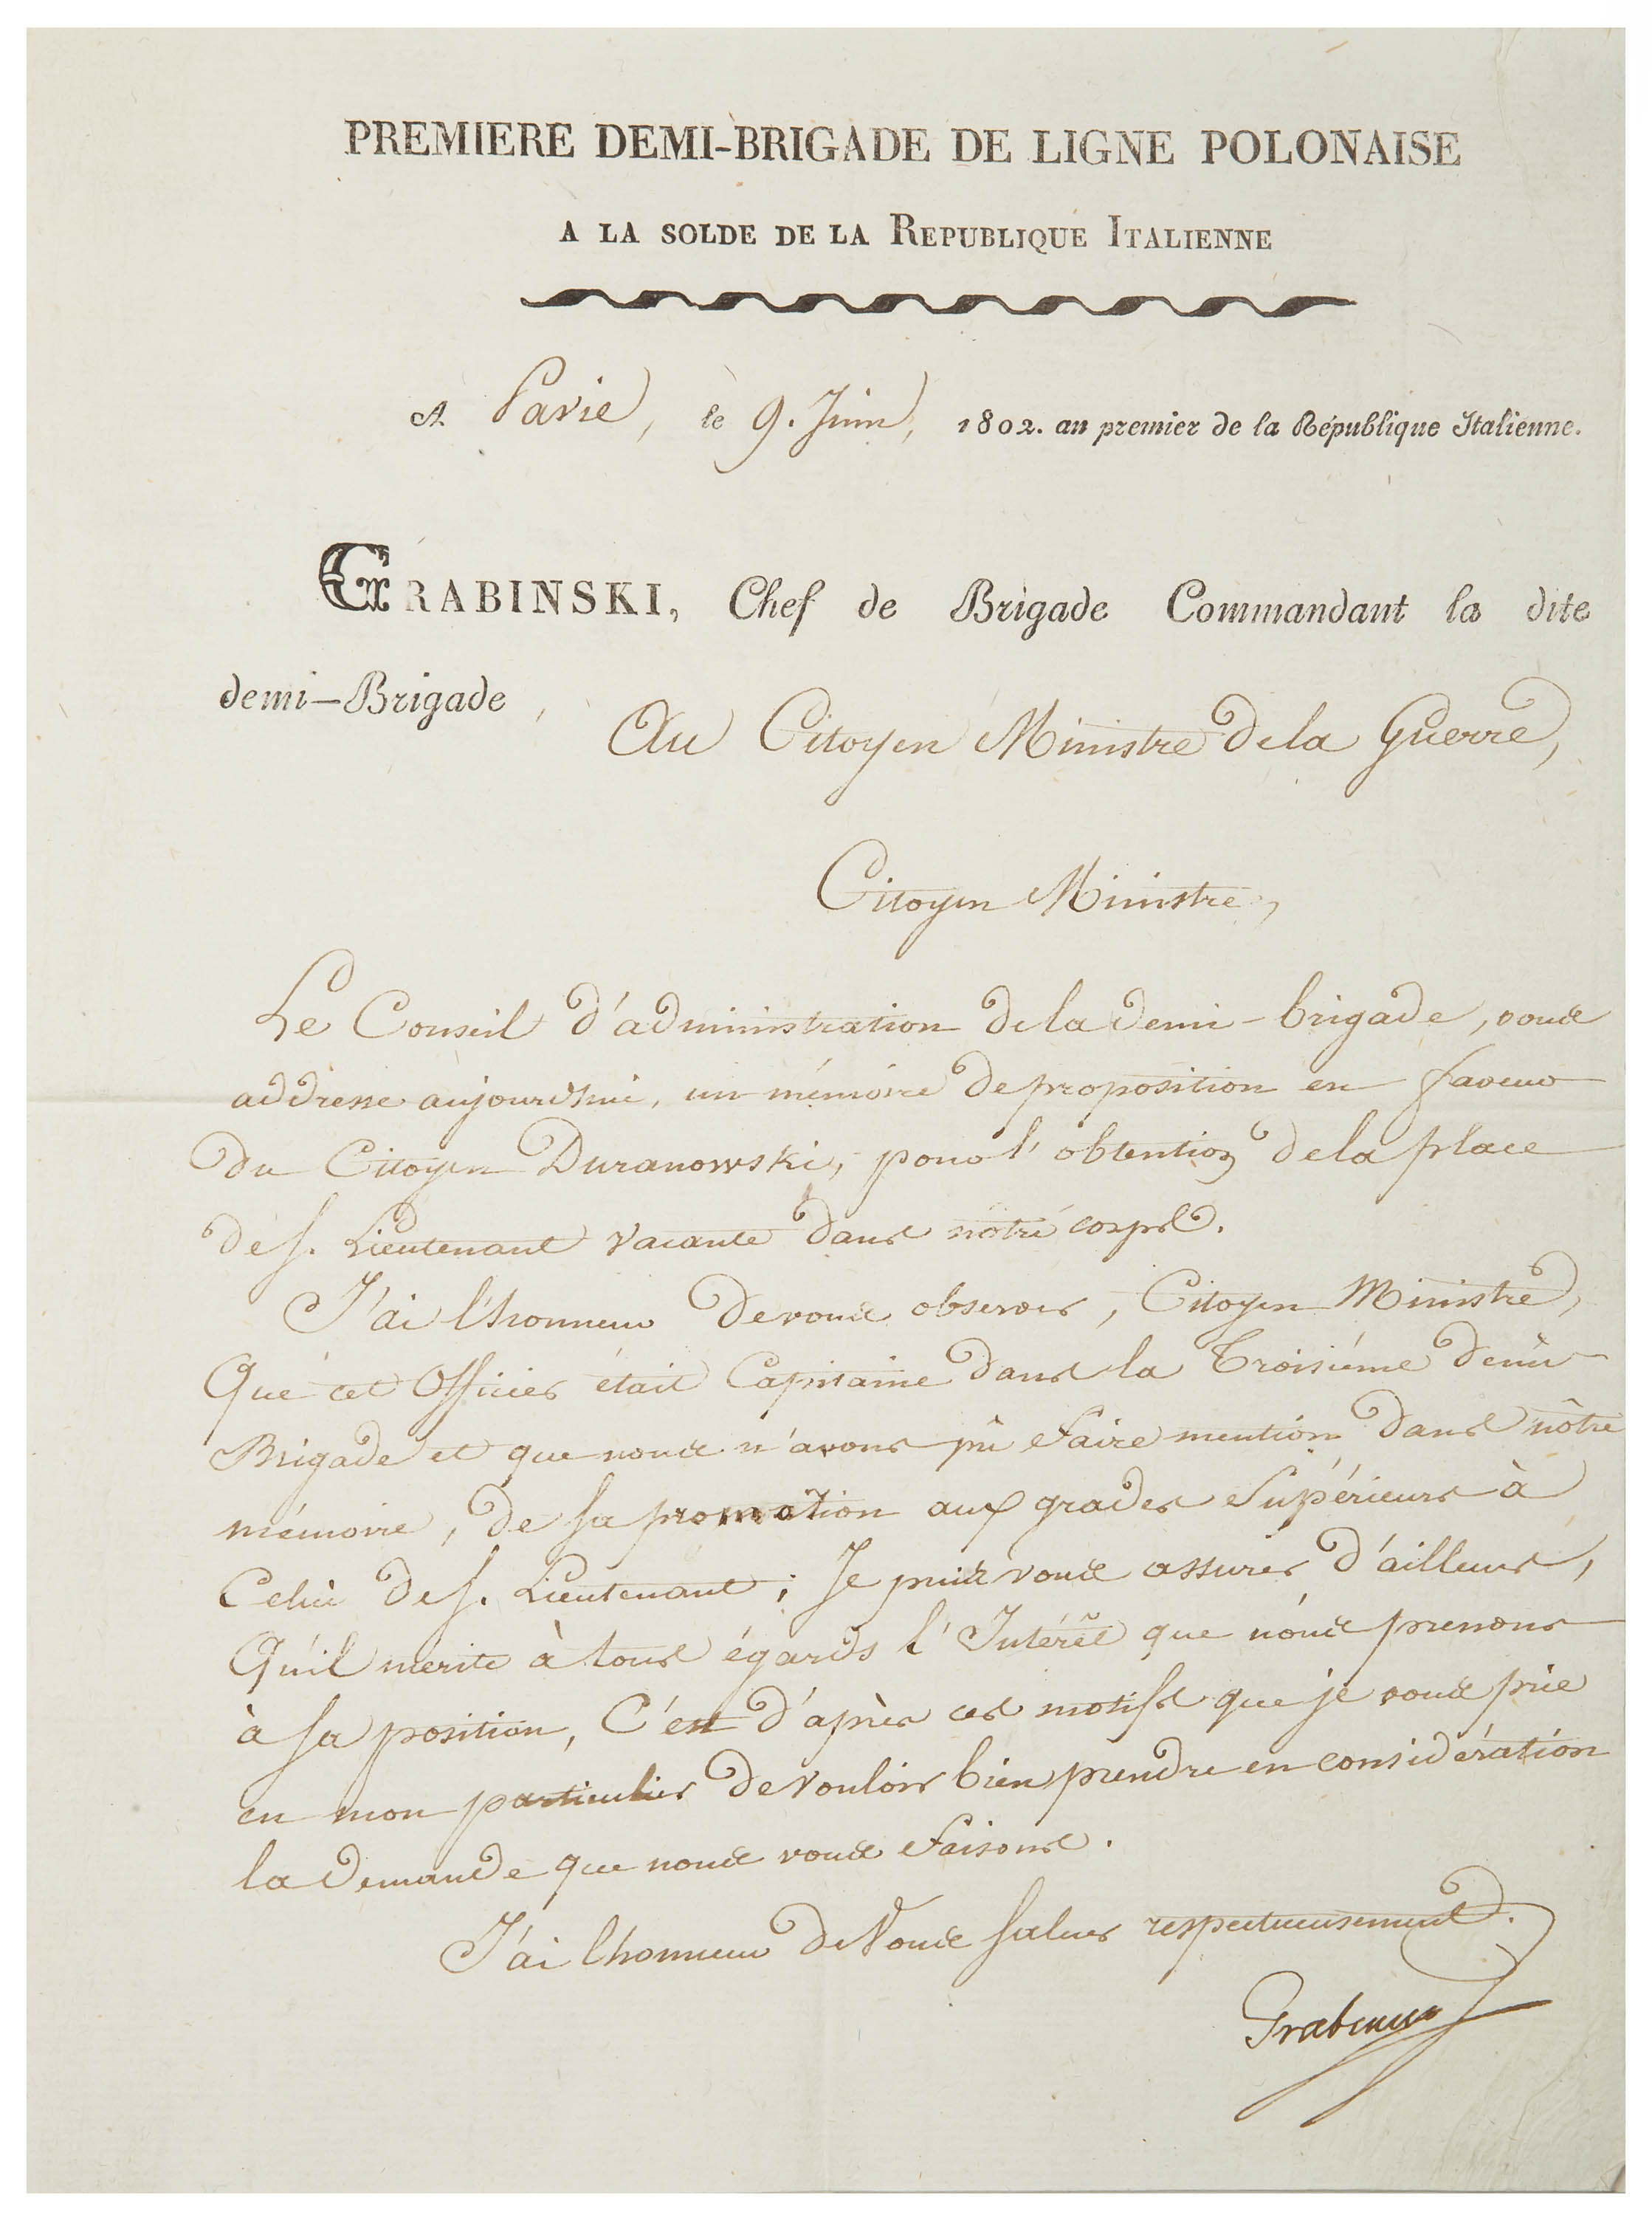 PREMIERE DEMI-BRIGADE DE LIGNE POLONAISE
A LA SOLDE DE LA REPUBLIQUE ITALIENNE
A Pavie, le 9. Juin, 1802. an premier de la République Italienne.
GRABINSKI, Chef de Brigade Commandant la dite
demi-Brigade,
Au Citoyen Ministre de la Guerre,
Citoyen Ministre,
Le Conseil d'administration de la demi-brigade, vous
addresse aujourdhui, un mémoire de proposition en faveur
du Citoyen Duranowski, pour l'obtention de la place
de s. Lieutenant vacante dans nôtre corps.
J'ai l'honneur de vous observer, Citoyen Ministre,
Que cet Officier était Capitaine dans la Troisiéme demi
Brigade et que nous n'avons pû faire mention dans nôtre
mémoire, de sa promotion aux grades Supérieurs à
Celui de s. Lieutenant; Je puis vous assurer d'ailleurs,
Qu'il merite à tous égards l'Intérêt que nous prenons
à sa position, C'est d'après ces motifs que je vous prie
en mon particulier de vouloir bien prendre en considération
la demande que nous vous faisons.
J'ai lhonneur de Vous saluer respectueusement.
Grabinski